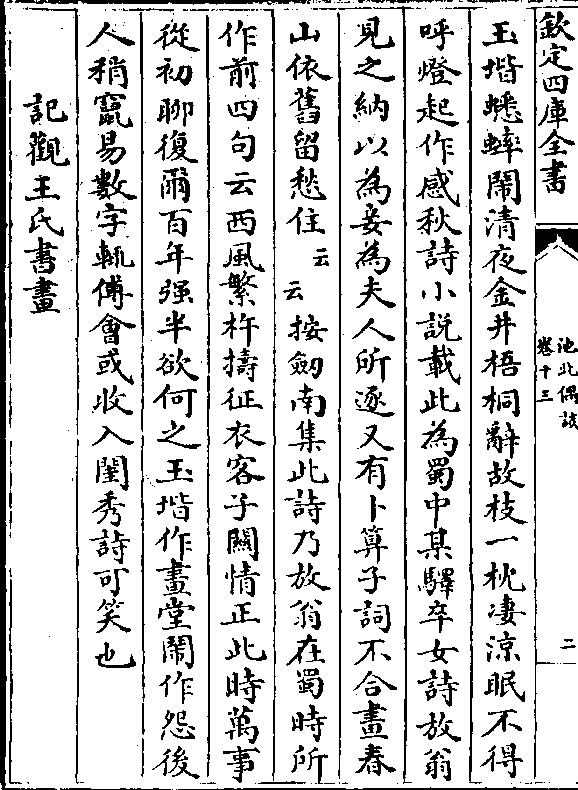 欽定四庫全書
池北偶談
卷十三
二
玉堦蟋蟀鬧清夜金井梧桐辭故枝一枕凄涼眠不得
呼燈起作感秋詩小説載此為蜀中某驛卒女詩放翁
見之納以為妾為夫人所逐又有卜算子詞不合畫春
山依舊留愁住云云按劒南集此詩乃放翁在蜀時所
作前四句云西風繁杵擣征衣客子闗情正此時萬事
從初聊復爾百年强半欲何之玉堦作畫堂鬧作怨後
人稍竄易數字輒傅會或收入閨秀詩可笑也
記觀王氏書畫